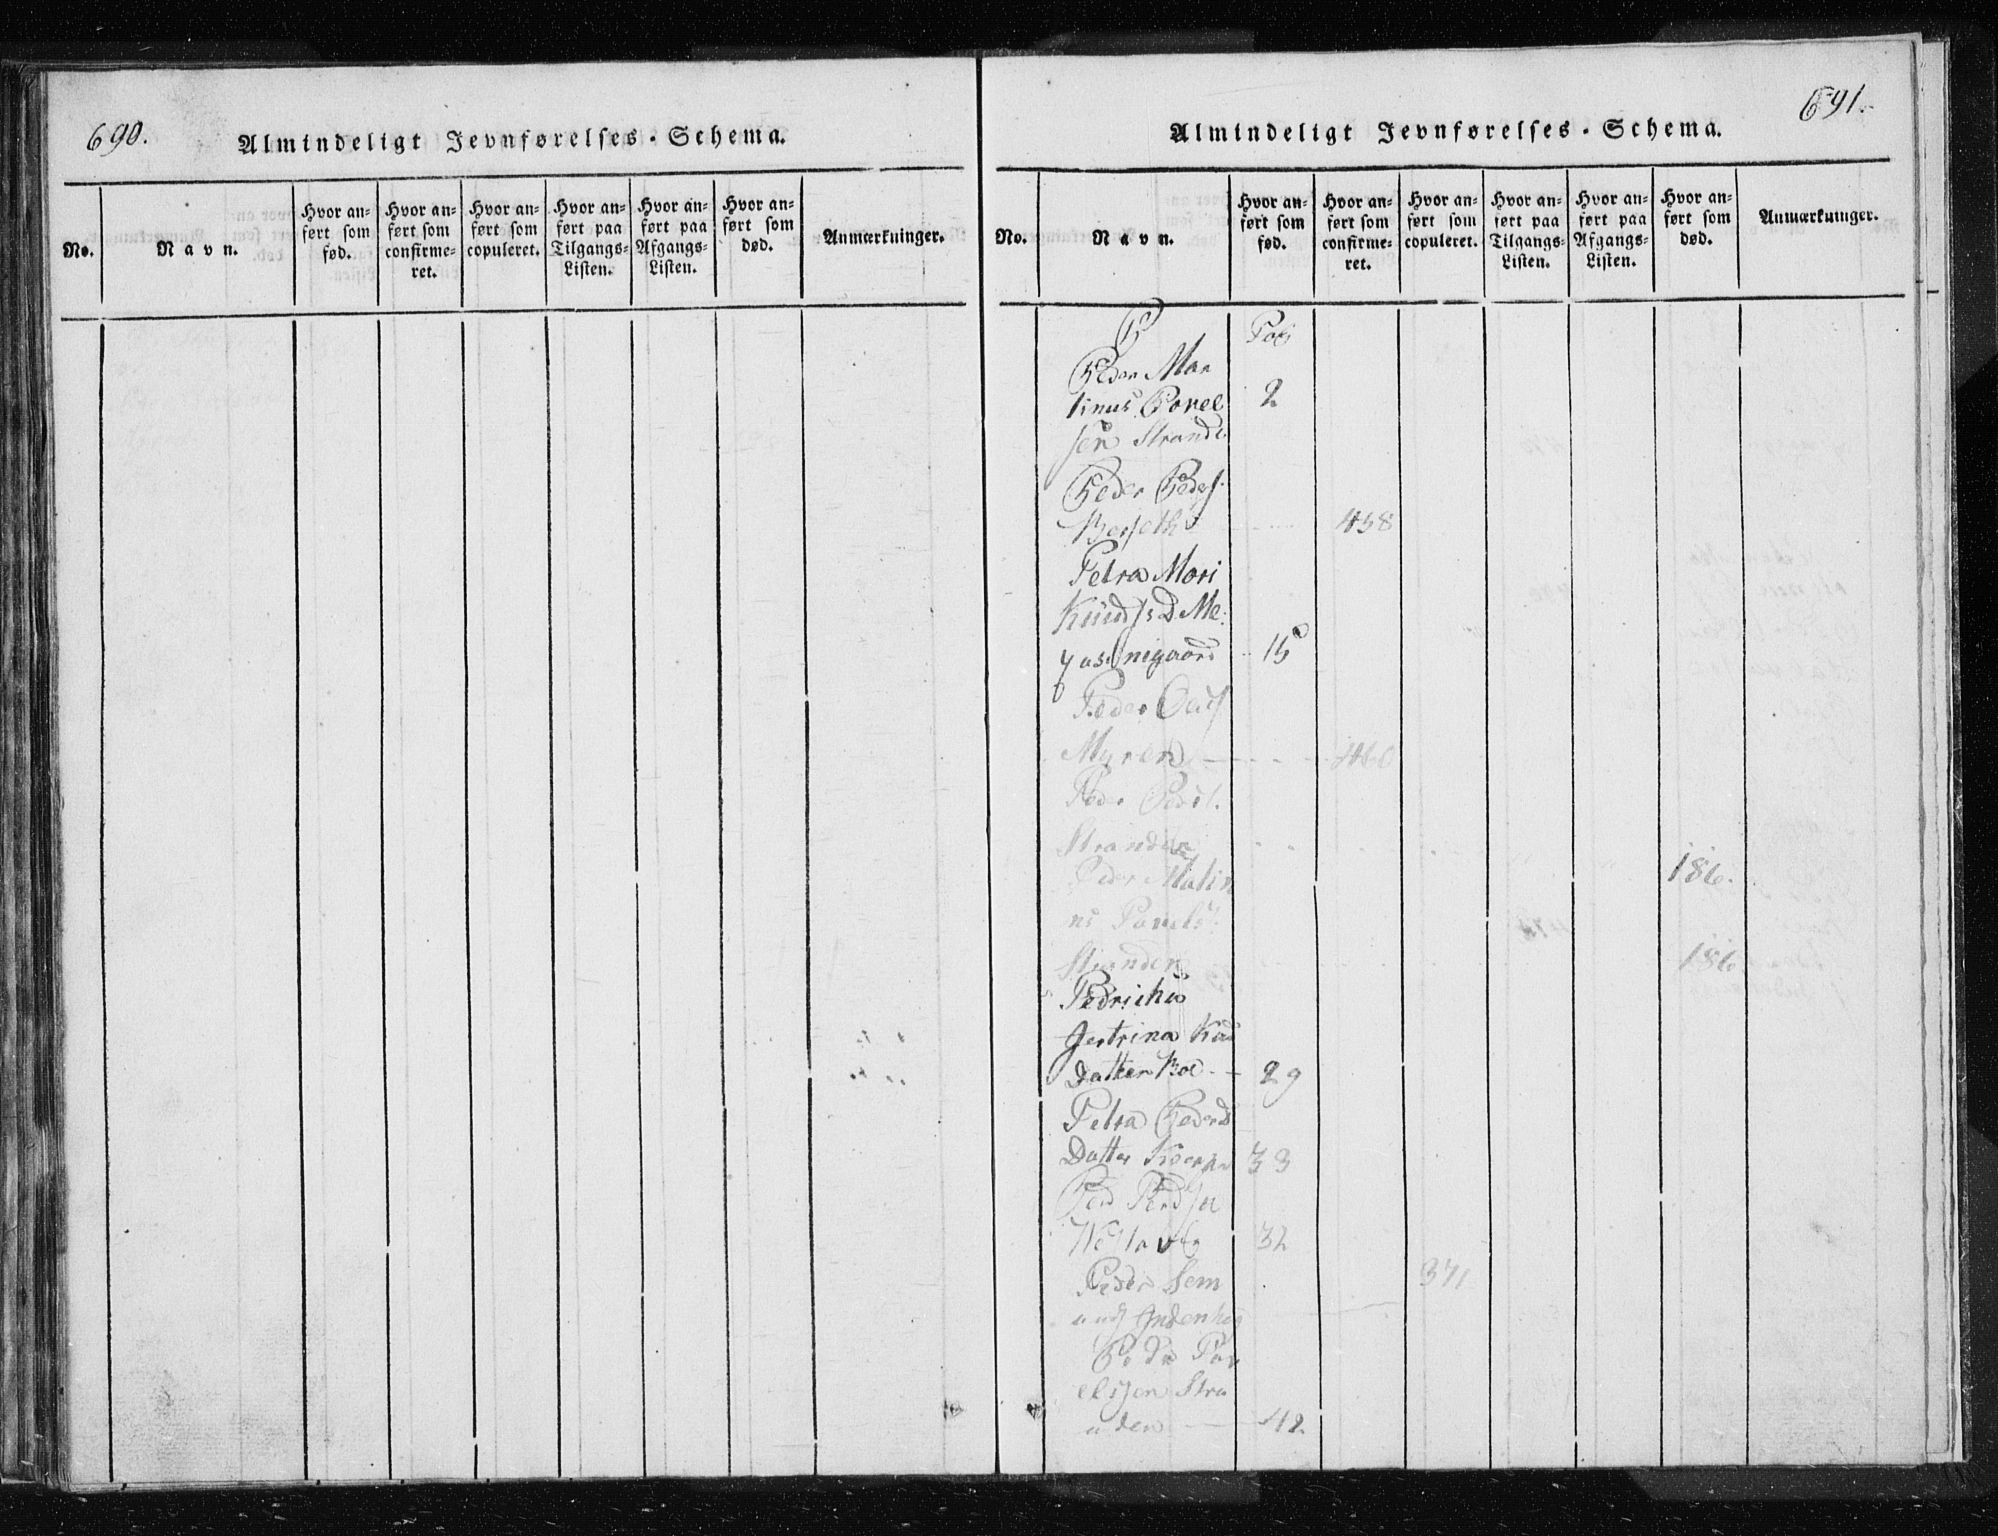 690.
Almindeligt Jevnførelses-Schema.
No.
Navn.
Hvor an-
ført som
fød.
Hvor an-
ført som
confirme-
ret.
Hvor an-
ført som
copuleret.
Hvor an-
ført paa
Tilgangs-
Listen.
Hvor an-
ført paa
Afgangs-
Listen.
Hvor an-
ført som
død.
Anmærkninger.
691.
Almindeligt Jevnførelses-Schema.
No.
Navn.
Hvor an-
ført som
fød.
Hvor an-
ført som
confirme-
ret.
Hvor an-
ført som
copuleret.
Hvor an-
ført paa
Tilgangs-
Listen.
Hvor an-
ført paa
Afgangs-
Listen.
Hvor an-
ført som
død.
Anmærkninger.
P Pag
Peder Mar
tinus Povel 2
sen Strande
Peder Peders.
458
Petra Mari
Knuds D Me
15
Peder
Myren 460
Peder Peders.
Stranden 186.
Peder Matin
us Povels.
Stranden 186
Pedricha
Jertrina
Datter Boe 29
Petra Peders
Datter 33
32
Peder 371
Peder Pov
elsen Stra
nden 42.